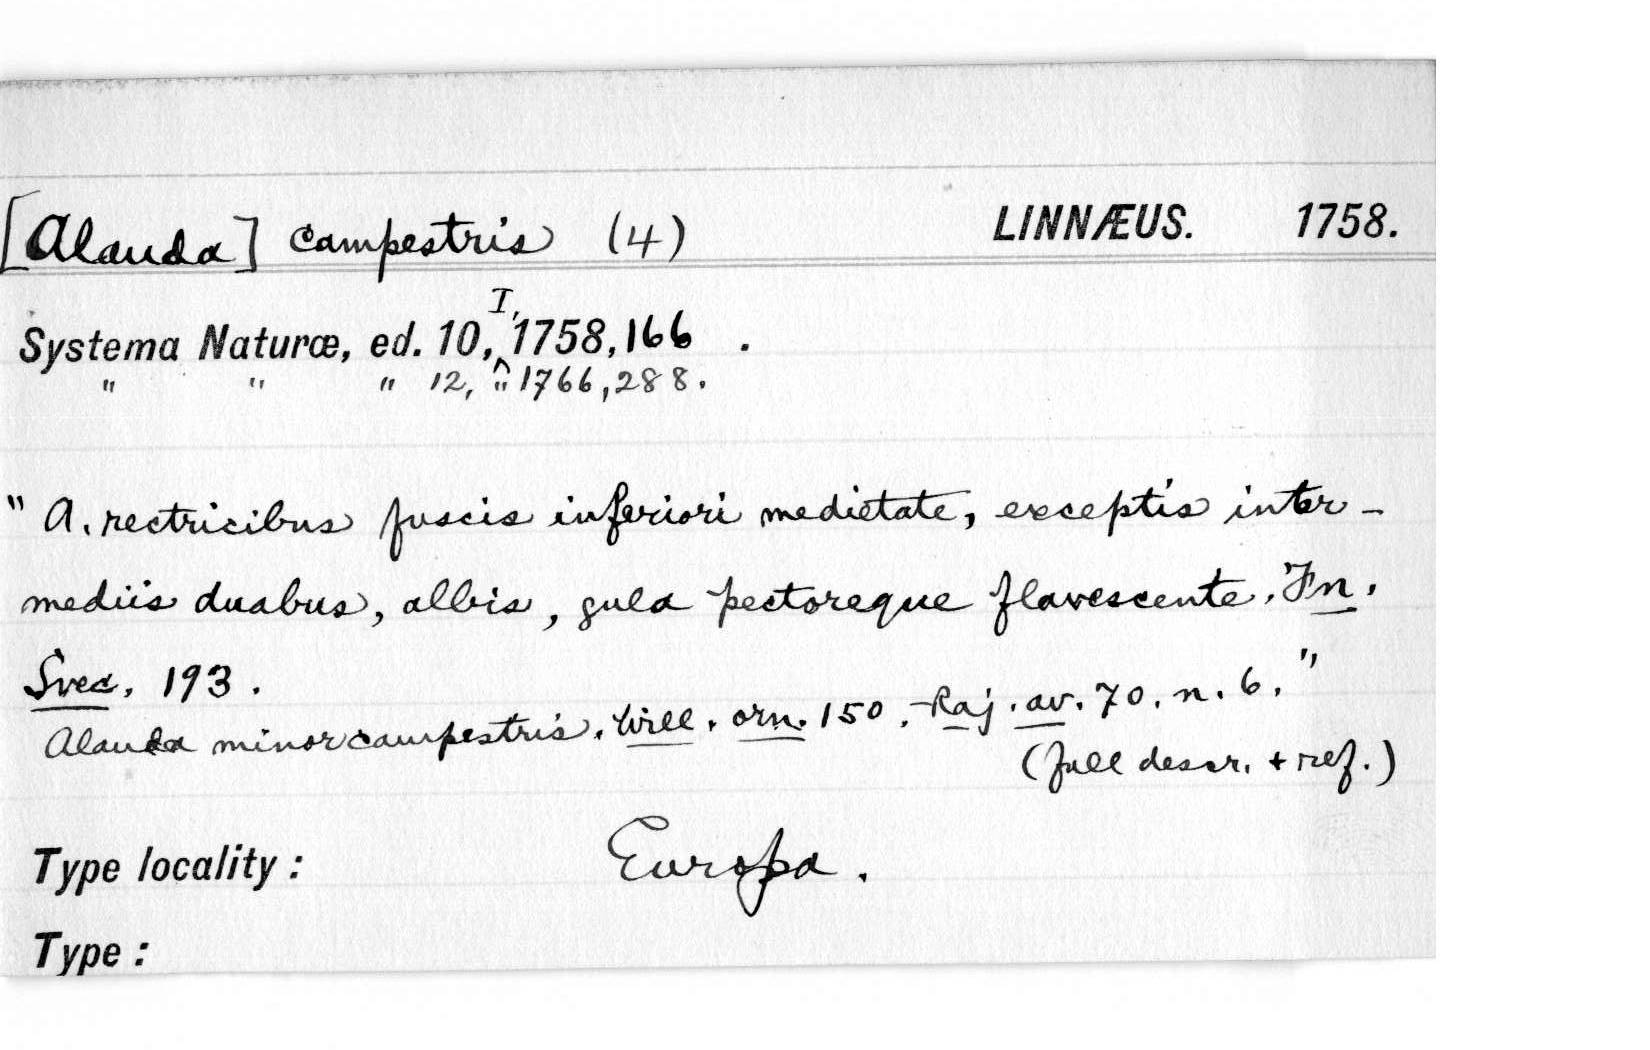 [Alauda] campestris (4) LINNÆUS. 1758.
Systema Naturæ, ed. 10, I, 1758, 166 .
" " " 12, " 1766, 288.
" A. rectricibus fuscis inferiori medietate, exceptis inter-
mediis duabus, albis, gula pectoreque flavescente. Fn.
Svec. 193.
Alauda minor campestris. Will. orn. 150. Raj. av. 70. n. 6."
(full descr. + ref.)
Type locality: Europa.
Type: